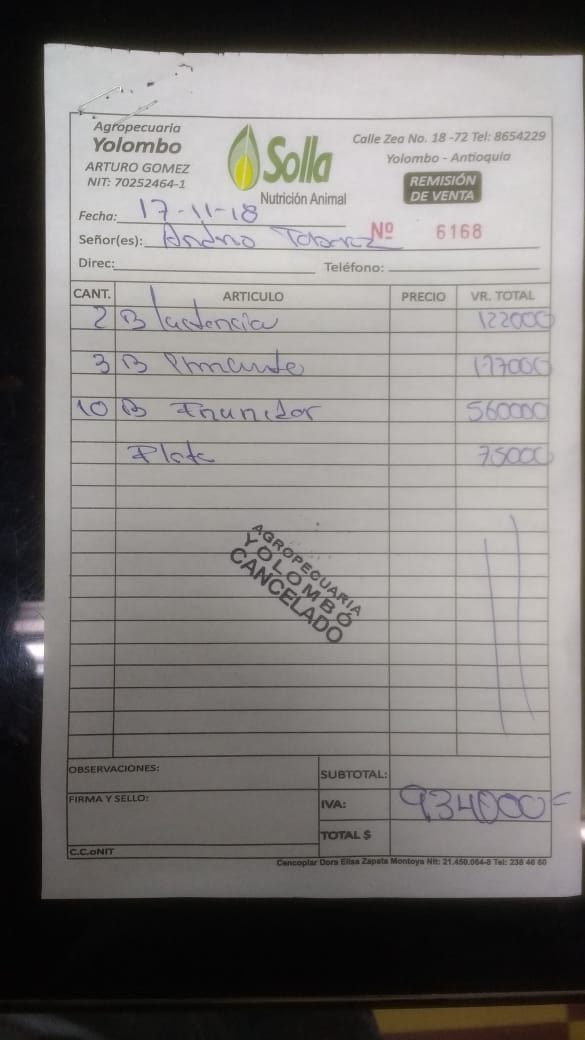 Agropecuaria
Yolombo
ARTURO GOMEZ
NIT: 70252464-1
Solla
Nutrición Animal
Calle Zea No. 18 -72 Tel: 8654229
Yolombo - Antioquia
REMISIÓN
DE VENTA
Fecha: 17-11-18
Nº 6168
Señor(es):
Direc: Teléfono:
CANT. ARTICULO PRECIO VR. TOTAL
2 B lactancia 122000
3 B 177000
10 B 560000
Plata 75000
AGROPECUARIA
YOLOMBÓ
CANCELADO
OBSERVACIONES:
SUBTOTAL:
FIRMA Y SELLO:
IVA: 934000=
TOTAL $
C.C.oNIT
Cencoplar Dora Elisa Zapata Montoya Nit: 21.450.064-8 Tel: 238 46 60